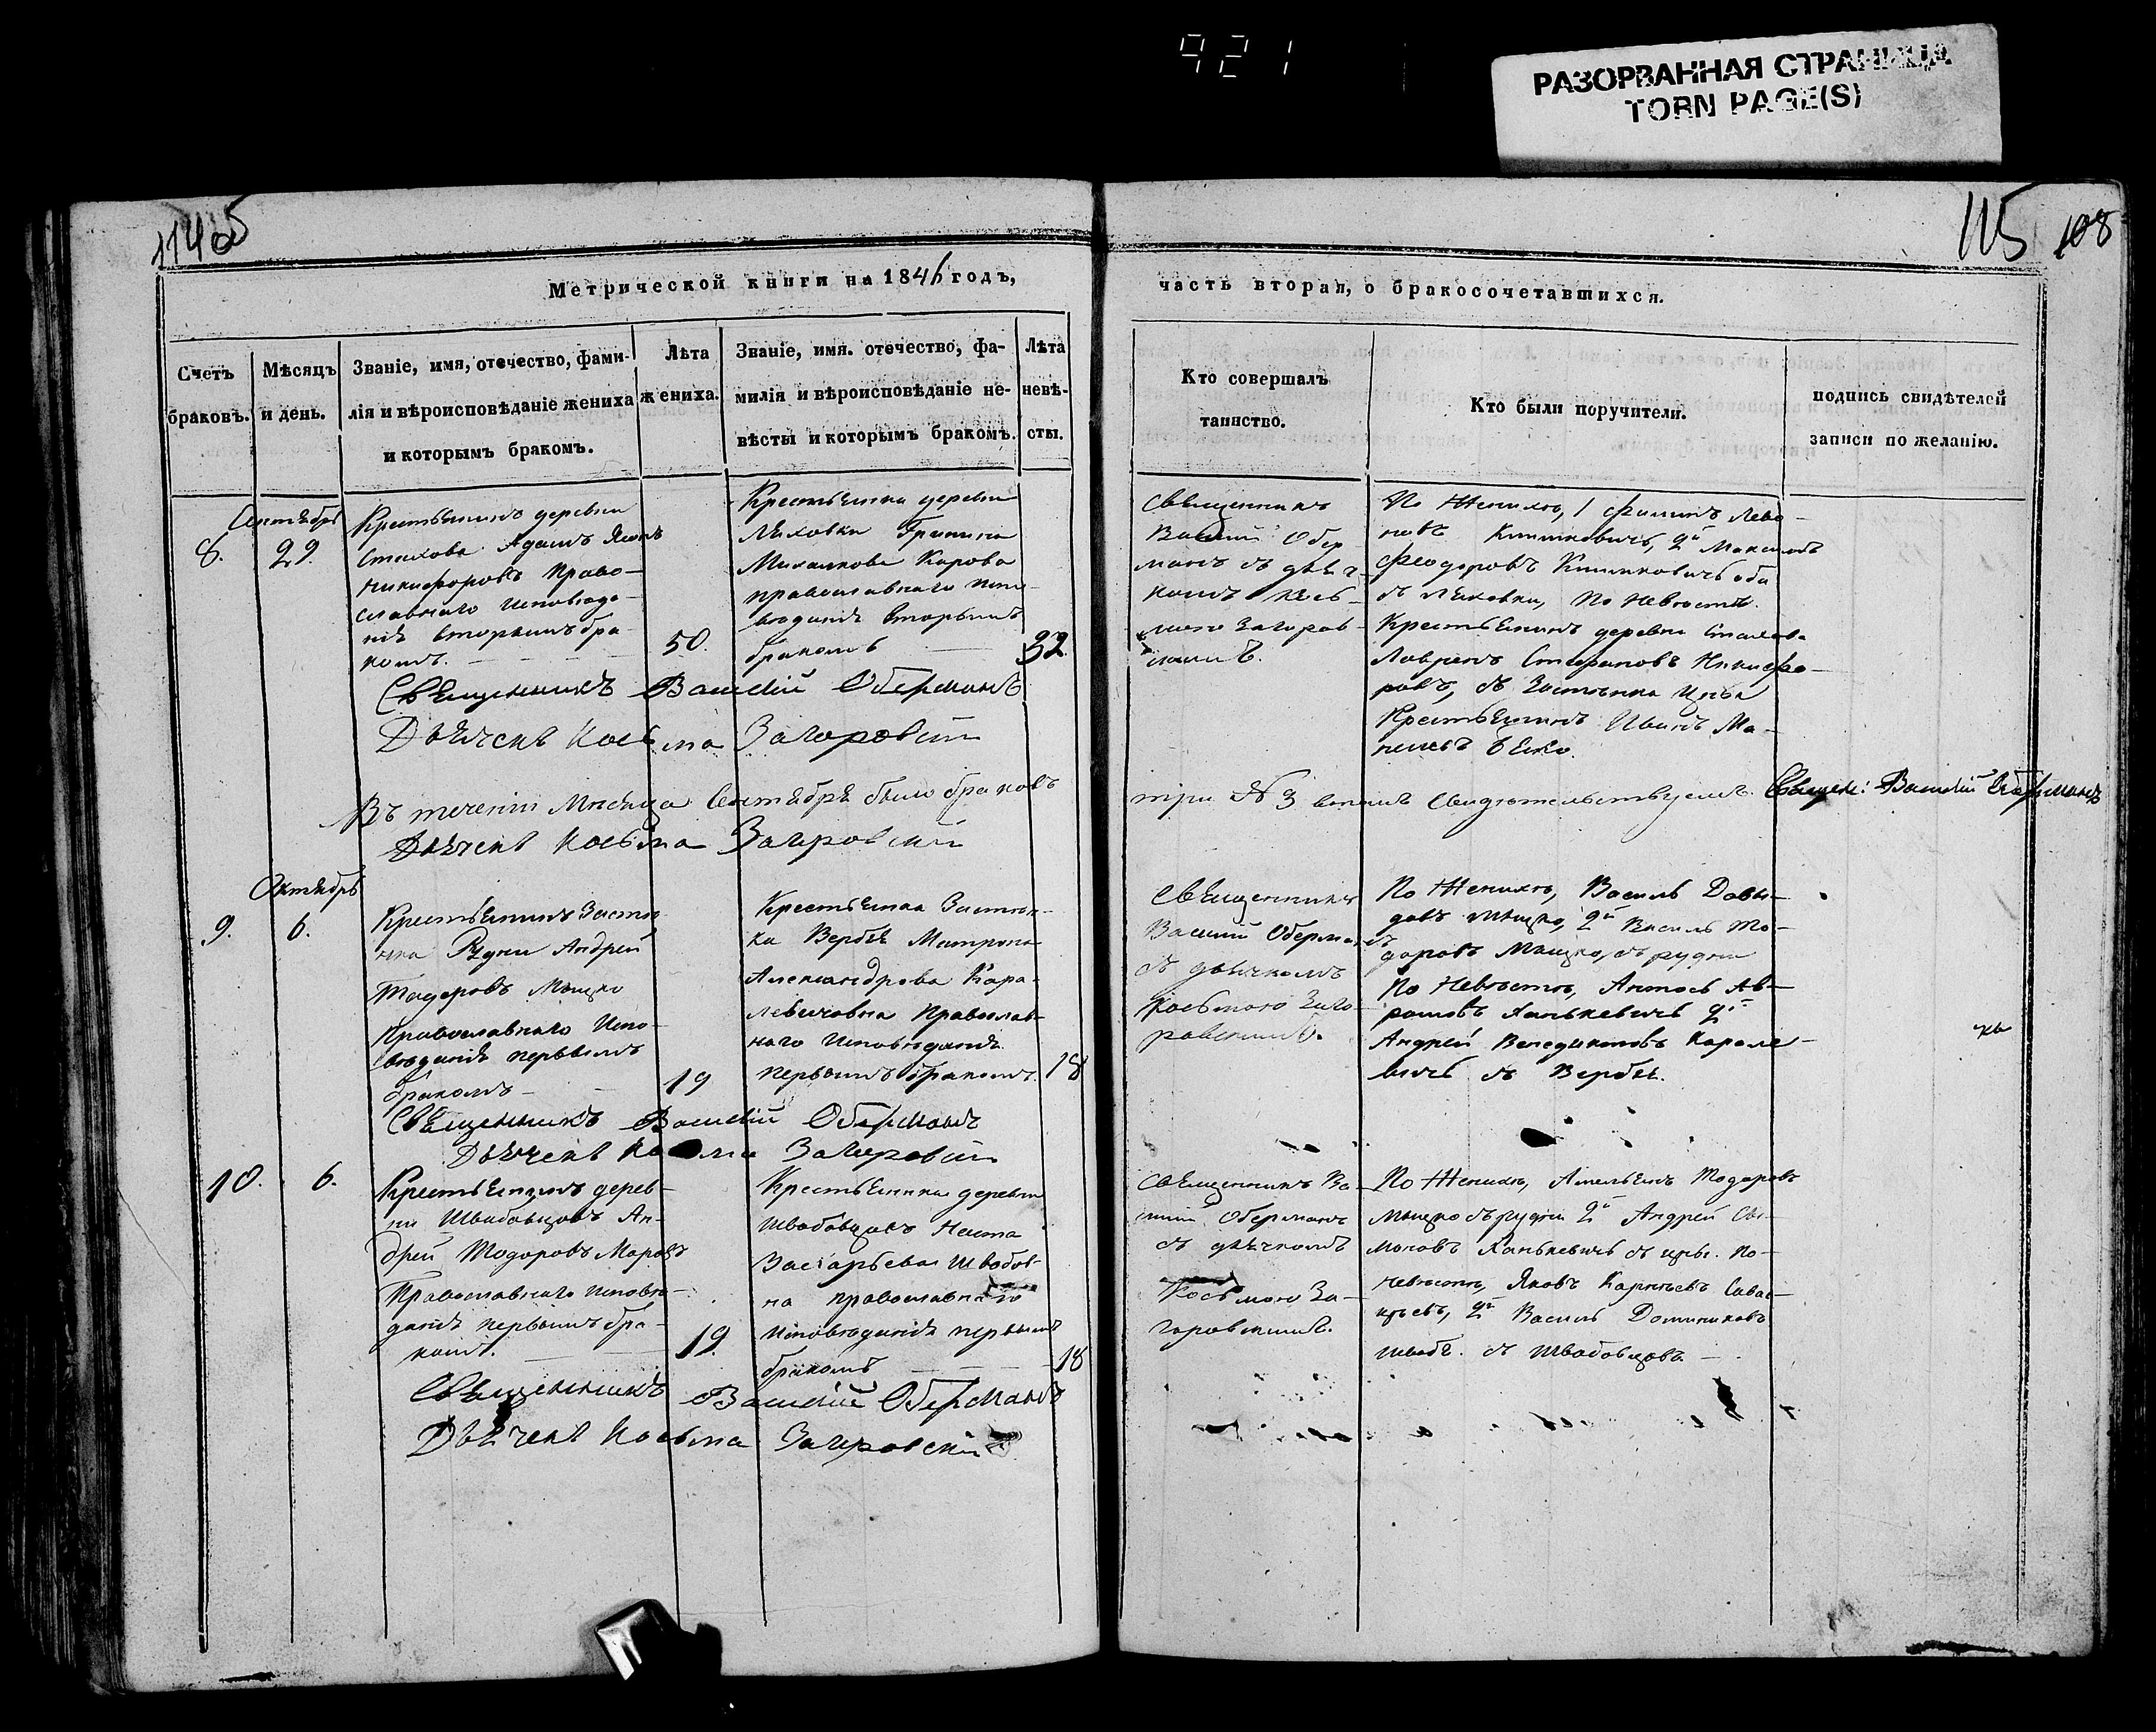 921
РАЗОРВАННАЯ СТРАНИЦА
TORN PAGE(S)
115 108
Метрической книги на 1846 годъ,
часть вторая, о бракосочетавшихся.
Счетъ браковъ.
Мѣсяцъ и день.
Званіе, имя, отечество, фами-
лія и вѣроисповѣданіе жениха
и которымъ бракомъ.
Лѣта
жениха.
Званіе, имя. отечество, фа-
милія и вѣроисповѣданіе не-
вѣсты и которымъ бракомъ.
Лѣта
невѣ-
сты.
Кто совершалъ
таинство.
Кто были поручители.
подпись свидѣтелей
записи по желанію.
8.
Сентябрь
29.
Крестьянинъ деревни
Стахова Адамъ
Никифоровъ Право-
славнаго Исповѣда-
нія вторымъ бра-
комъ.
50.
Крестьянка деревни
Ляховки
православнаго Испо-
вѣданія вторымъ
бракомъ
32.
Священникъ
Василій Обер-
манъ съ дьяч-
комъ Кось-
мою Загоров-
скимъ.
По Женихѣ, 1 Лево-
новъ Климковичъ, 2й Максимъ
Феодоровъ Климковичъ оба
съ Ляховки, По Невѣстѣ.
Крестьянинъ деревни Стахова
Стефановъ Никифо-
ровъ, съ Застѣнка
Крестьянинъ Иванъ
Священникъ Василій Оберманъ
Дьячекъ Косьма Загоровскій
Въ теченіи Мѣсяца Сентября было браковъ
три № 3 въ чемъ свидѣтельствуемъ. Священ: Василій Оберманъ
Дьячекъ Косьма Загоровскій
9.
Октябрь
6.
Крестьянинъ Застѣн-
ка Рудни Андрей
Тодоровъ Мыцко
Православнаго Испо-
вѣданія первымъ
бракомъ
19
Крестьянка Застѣн-
ка Вербы Матрона
Александрова Кара-
левичовна Православ-
наго Исповѣданія
первымъ бракомъ.
18
Священникъ
Василій Оберманъ
съ дьячкомъ
Косьмою Заго-
ровскимъ.
По Женихѣ, Василь Давы-
довъ Мыцко, 2й Василь То-
доровъ Мыцко, съ рудни
По Невѣстѣ, Антось Ав-
рамовъ Ханькевичъ 2й
Андрей Венедиктовъ Карале-
вичъ съ Вербы.
Священникъ Василій Оберманъ
Дьячекъ Косьма Загоровскій
10.
6.
Крестьянинъ дерев-
ни Швабовцовъ Ан-
дрей Тодоровъ
Православнаго Исповѣ-
данія первымъ бра-
комъ.
19.
Крестьянка деревни
Швабовцовъ Наста
Захарьева Швабов-
на православнаго
Исповѣданія первымъ
бракомъ
18
Священникъ Ва-
силій Оберманъ
съ дьячкомъ
Косьмою За-
горовскимъ.
По Женихѣ, Амельянъ Тодоровъ
Мыцко съ рудни 2й Андрей
Ханькевичъ По
невѣстѣ, Яковъ
2й Василь Доминиковъ
Шваб. съ Швабовцовъ
Священникъ Василій Оберманъ
Дьячекъ Косьма Загоровскій